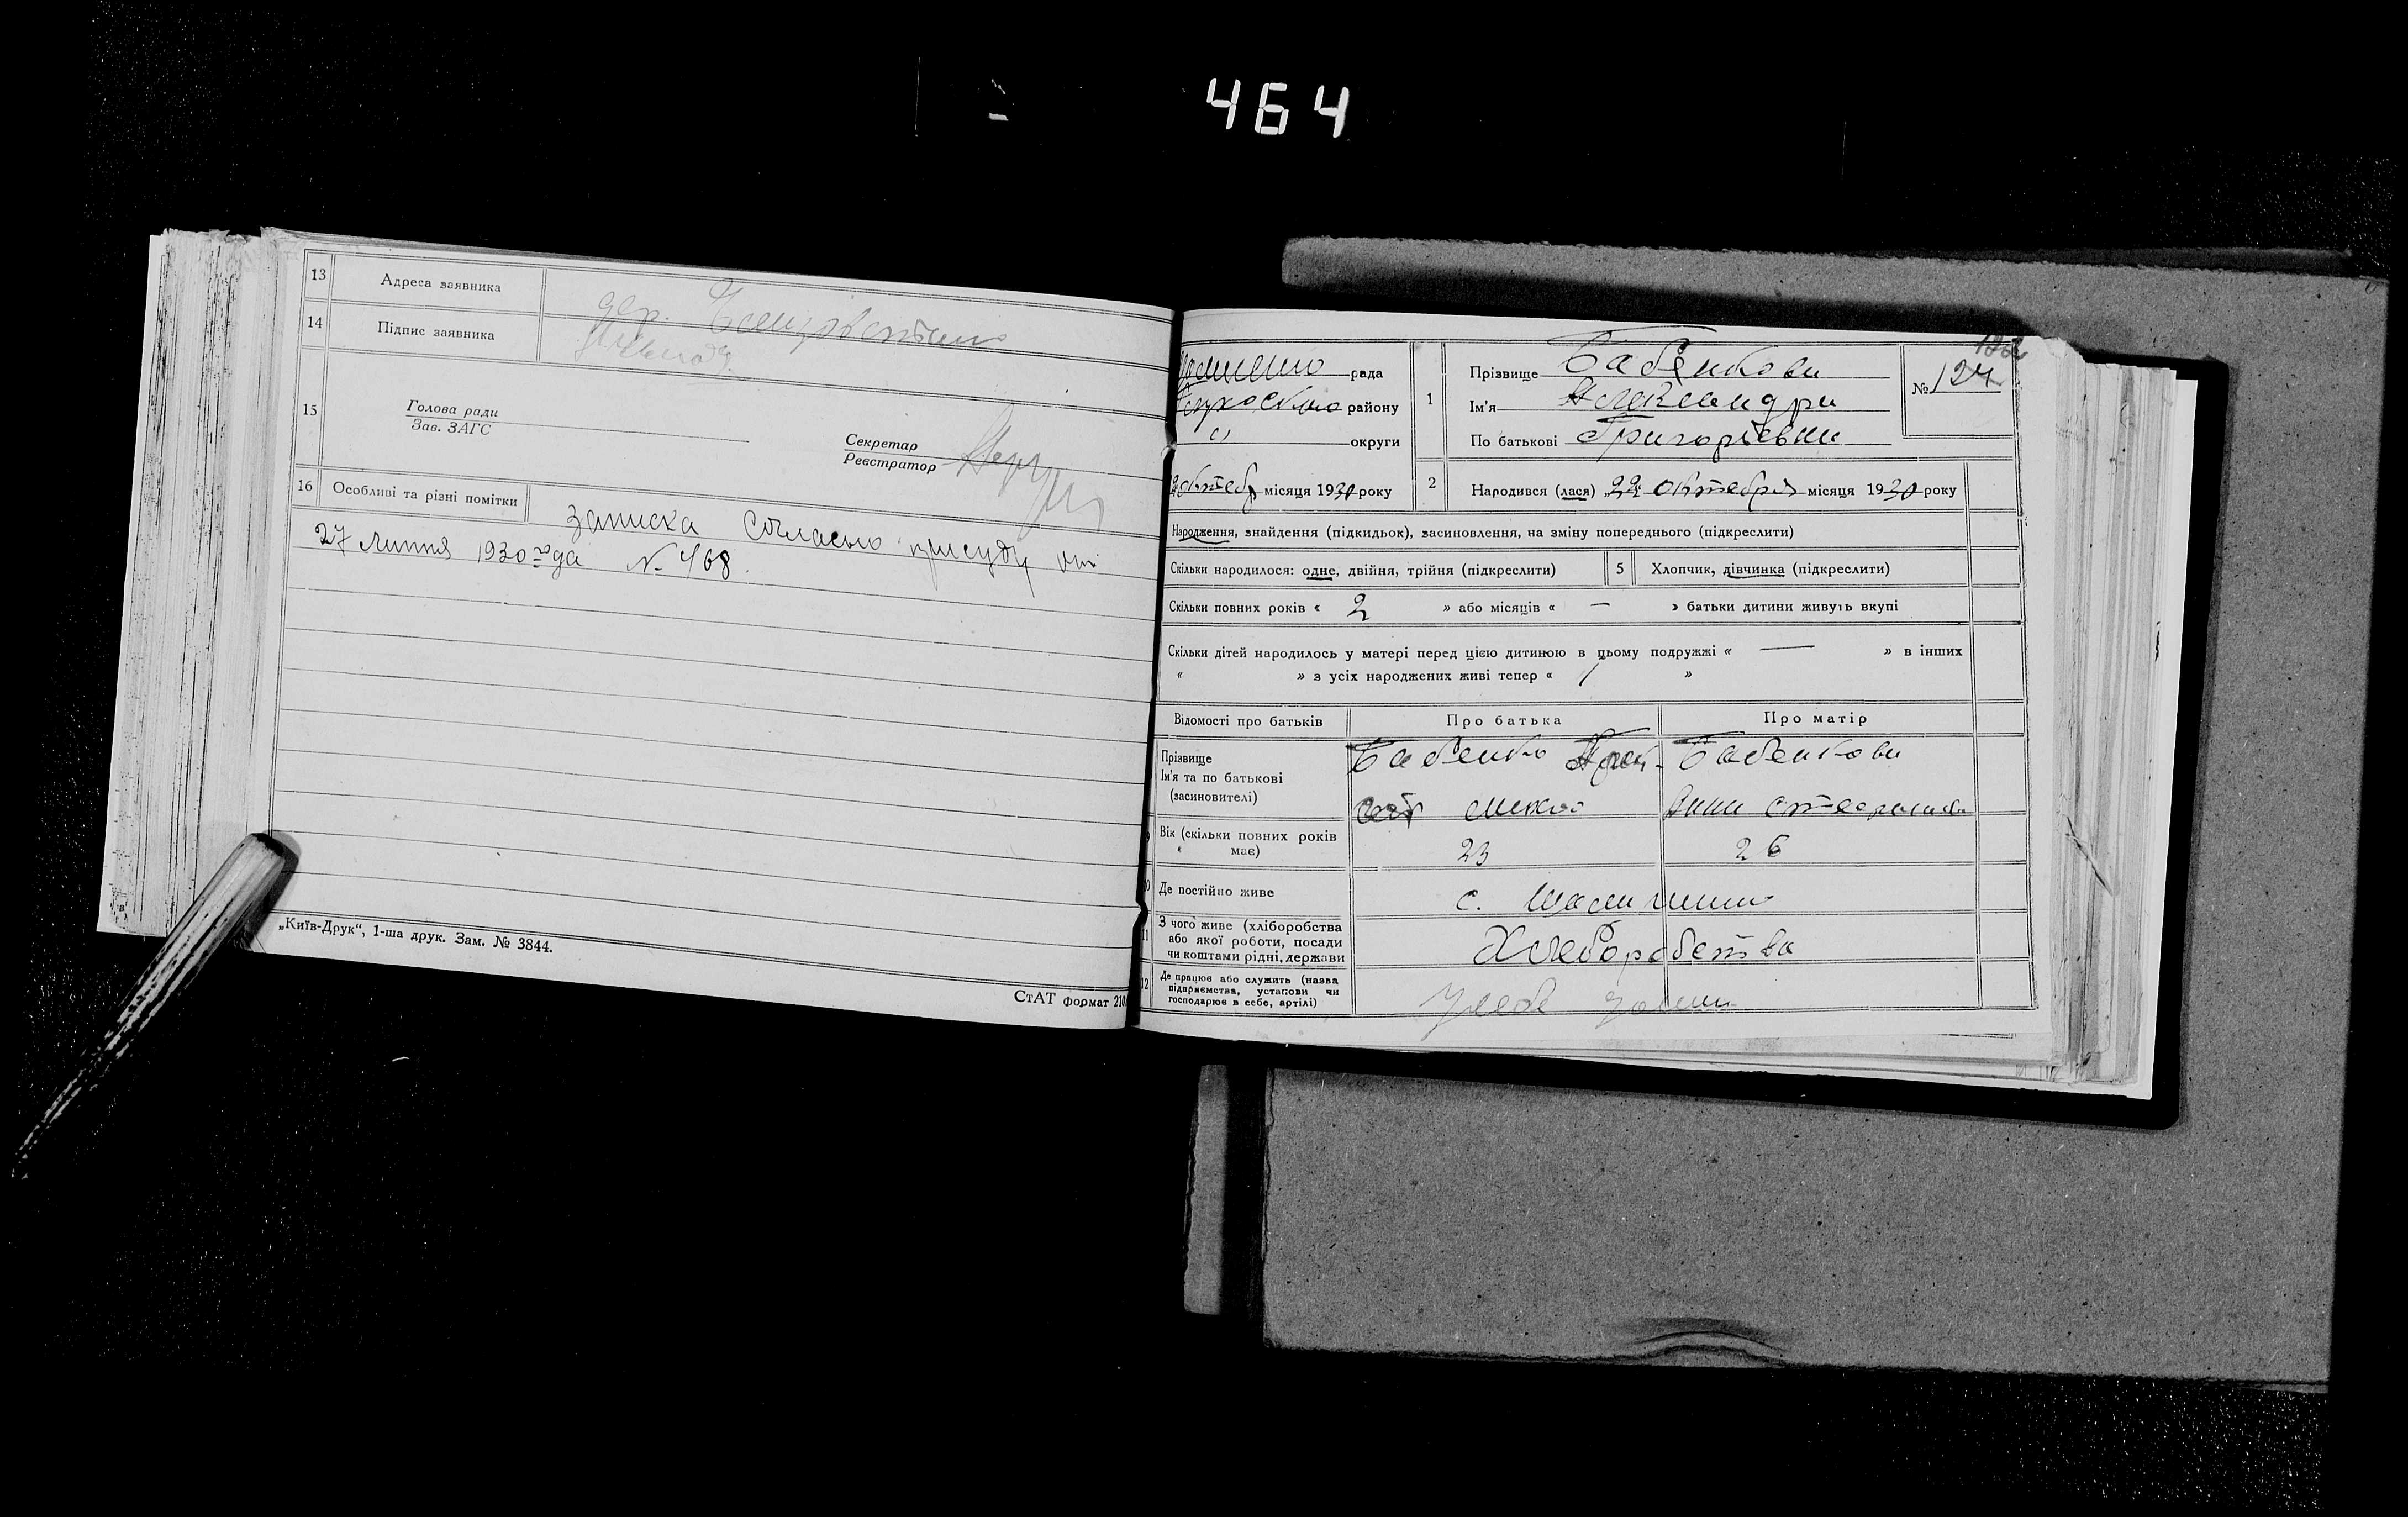 464
13 Адреса заявника дер.
14 Підпис заявника
15 Голова ради
Зав. ЗАГС
Секретар
Реєстратор
16 Особливі та різні помітки записка согласно присуду от
27 липня 1930 года № 468.
„Київ-Друк“, 1-ша друк. Зам. № 3844.
СтАТ формат 210
рада
району
округи
октебр місяця 1930 року
1 Прізвище Бабенкова
Ім'я Александра
По батькові Григоріевна
№ 124
2 Народився (лася) „22 октебря місяця 1930 року
Народження, знайдення (підкидьок), засиновлення, на зміну попереднього (підкреслити)
Скільки народилося: одне, двійня, трійня (підкреслити) 5 Хлопчик, дівчинка (підкреслити)
Скільки повних років « 2 » або місяців « — » батьки дитини живуть вкупі
Скільки дітей народилось у матері перед цією дитиною в цьому подружжі « — » в інших
« » з усіх народжених живі тепер « 1 »
Відомості про батьків Про батька Про матір
Прізвище
Ім'я та по батькові
(засиновителі)
Бабенко
Бабенкова
Анна
Вік (скільки повних років
має) 23 26
Де постійно живе с.
11 З чого живе (хліборобства
або якої роботи, посади
чи коштами рідні, держави Хлеборобства
12 Де працює або служить (назва
підприємства, установи чи
господарює в себе, артілі)